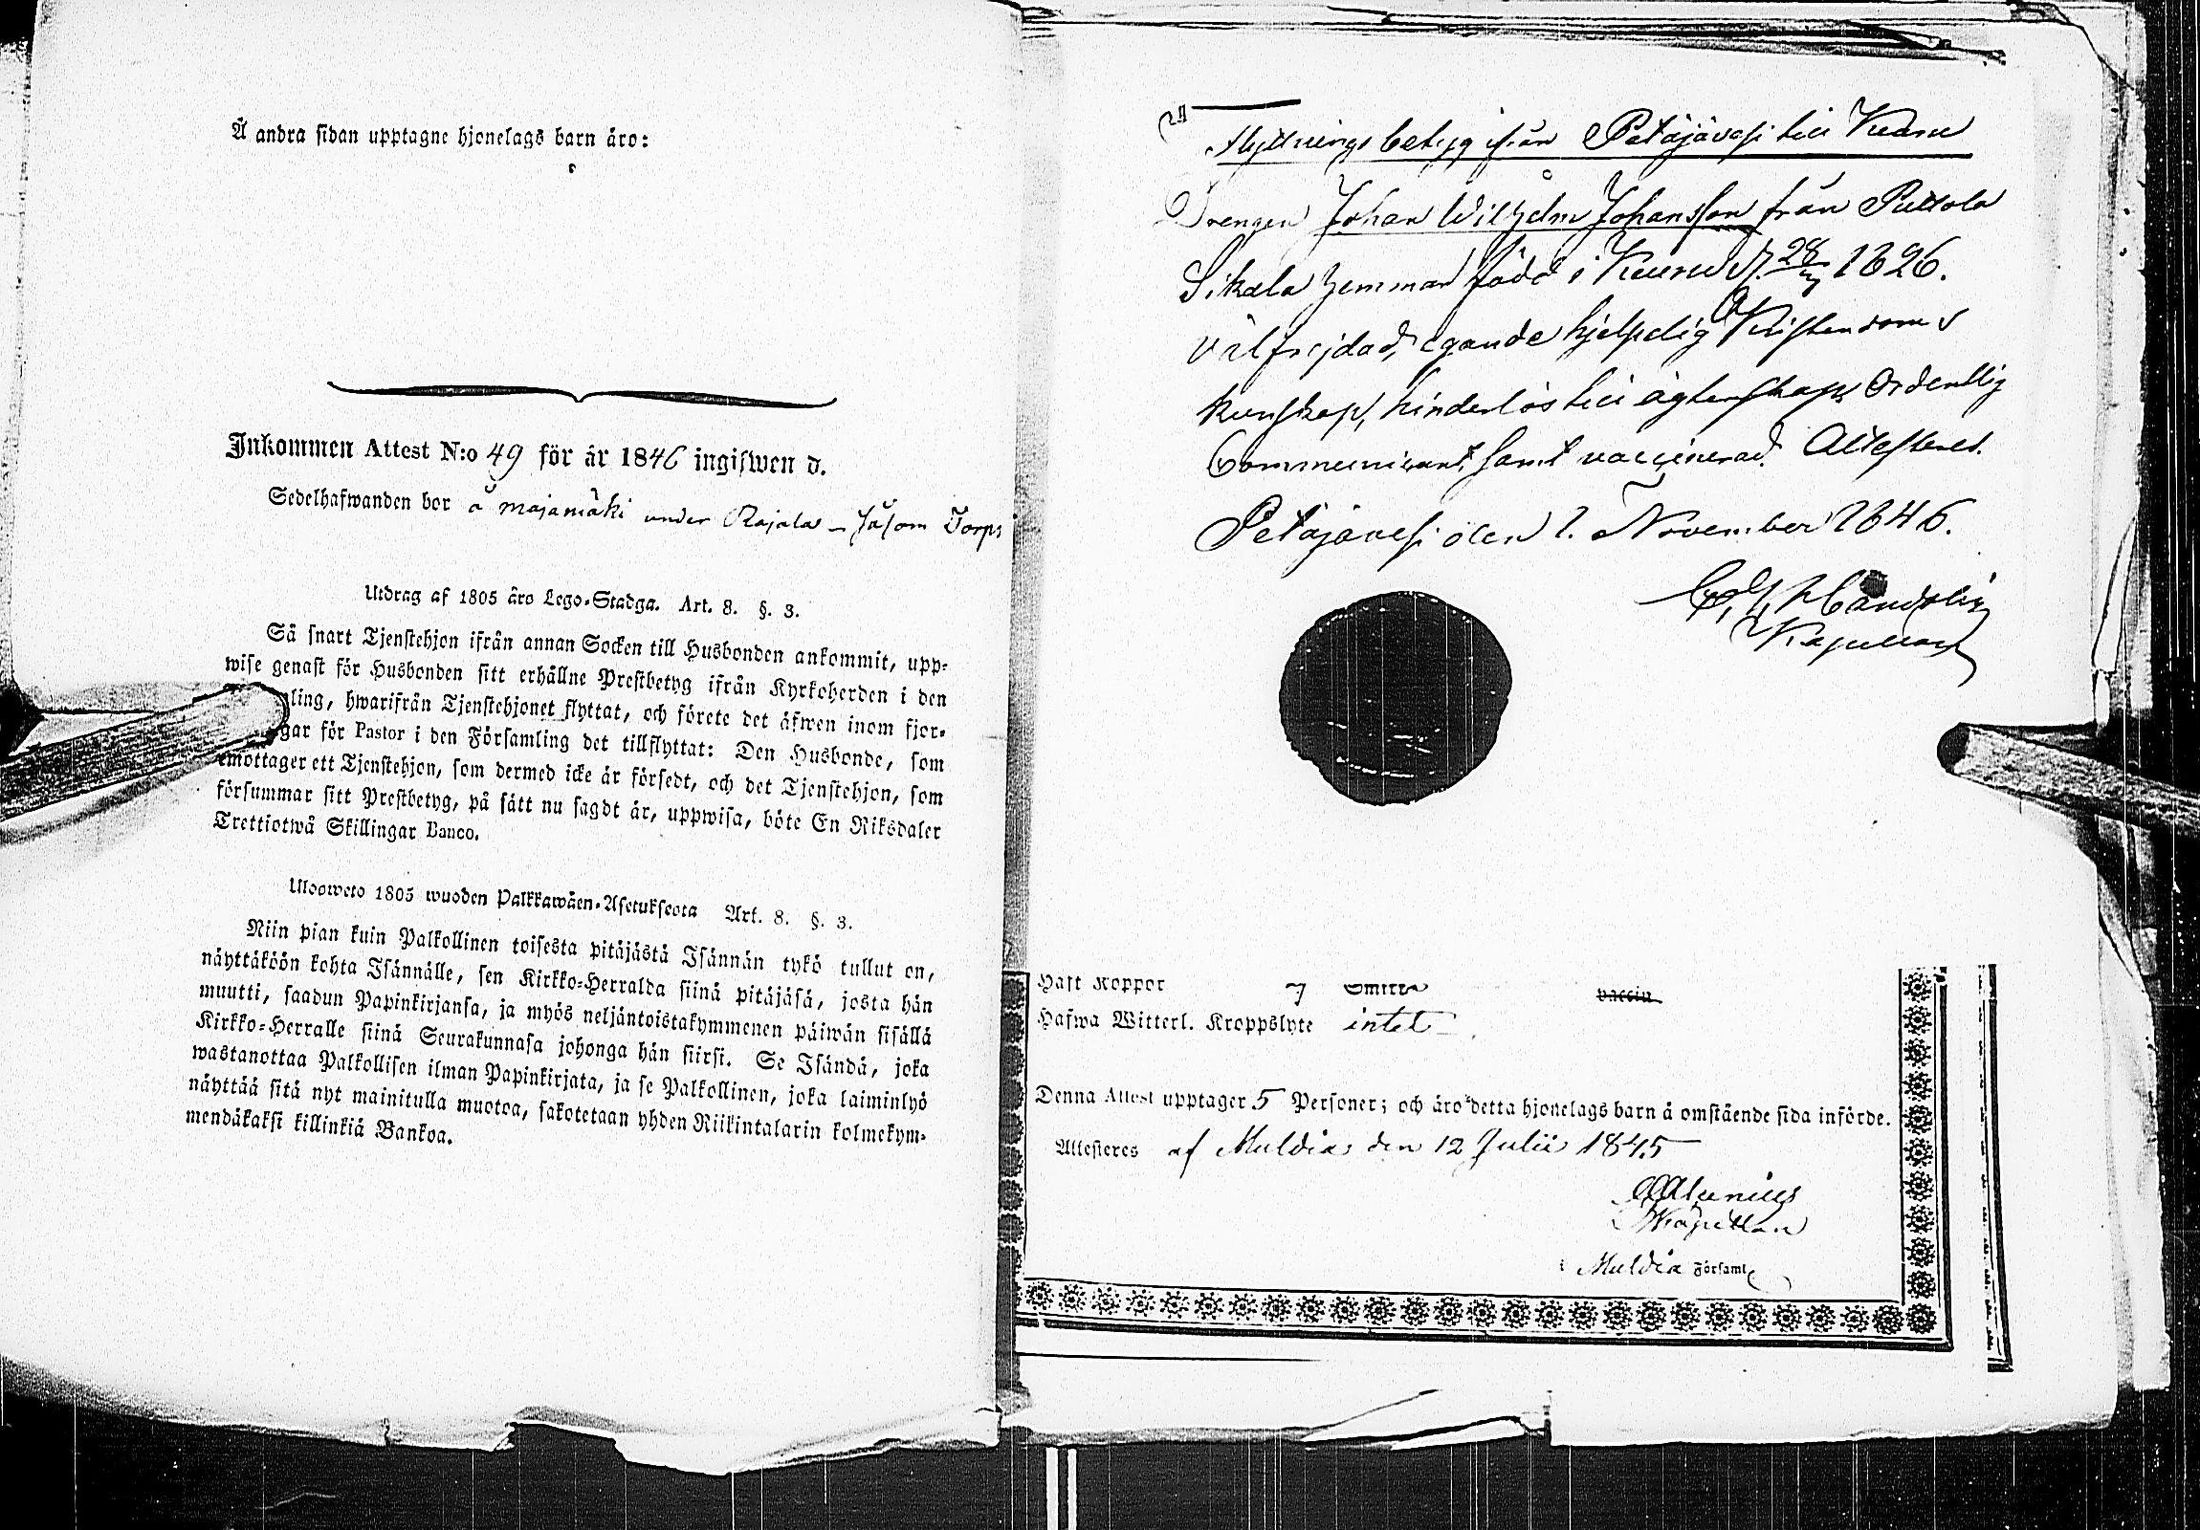 Å andra sidan upptagne hjonelags barn äro:
Inkommen Attest N:o 49 för år 1846 ingifwen d.
Sedelhafwanden bor å Majamäki under Rajala - såsom Torp
Utdrag af 1805 års Lego-Stadga. Art. 8. §. 3.
Så snart Tjenstehjon ifrån annan Socken till Husbonden ankommit, upp-
wise genast för Husbonden sitt erhållne Prestbetyg ifrån Kyrkoherden i den
ling, hwarifrån Tjenstehjonet flyttat, och förete det äfwen inom fjor-
gar för Pastor i den Församling det tillflyttat: Den Husbonde, som
emottager ett Tjenstehjon, som dermed icke är försedt, och det Tjenstehjon, som
försummar sitt Prestbetyg, på sätt nu sagdt är, uppwisa, böte En Riksdaler
Trettiotwå Skillingar Banco.
Ulooweto 1805 wuoden Palkkawäen-Asetuksesta Art. 8. §. 3.
Niin pian kuin Palkollinen toisesta pitäjästä Isännän tykö tullut on,
näyttäköön kohta Isännälle, sen Kirkko-Herralda siinä pitäjäsä, josta hän
muutti, saadun Papinkirjansa, ja myös neljäntoistakymmenen päiwän sisällä
Kirkko-Herralle siinä Seurakunnasa johonga hän siirsi. Se Isändä, joka
wastanottaa Palkollisen ilman Papinkirjata, ja se Palkollinen, joka laiminlyö
näyttää sitä nyt mainitulla muotoa, sakotetaan yhden Riikintalarin kolmekym-
mendäkaksi killinkiä Bankoa.
Flyttnings betyg ifrån Petäjävesi till Keuru
Drengen Johan Wilhelm Johansson från Puttola
Sikala hemman född i Keuru d. 28 1826.
välfrejdad, egande hjelpelig Kristendoms
kunskap, hinderlös till ägtenskap, Ordentlig
Communicant samt vaccinerad. Attesteras.
Petäjävesi den 1. November 1846.
Kapellan
Haft Koppor
Hafwa Witterl. Kroppslyte intet
Denna Attest upptager 5 Personer; och äro detta hjonelags barn å omstående sida införde.
Attesteres af Muldia den 12 Julii 1845
Kapellan
i Muldia Församl